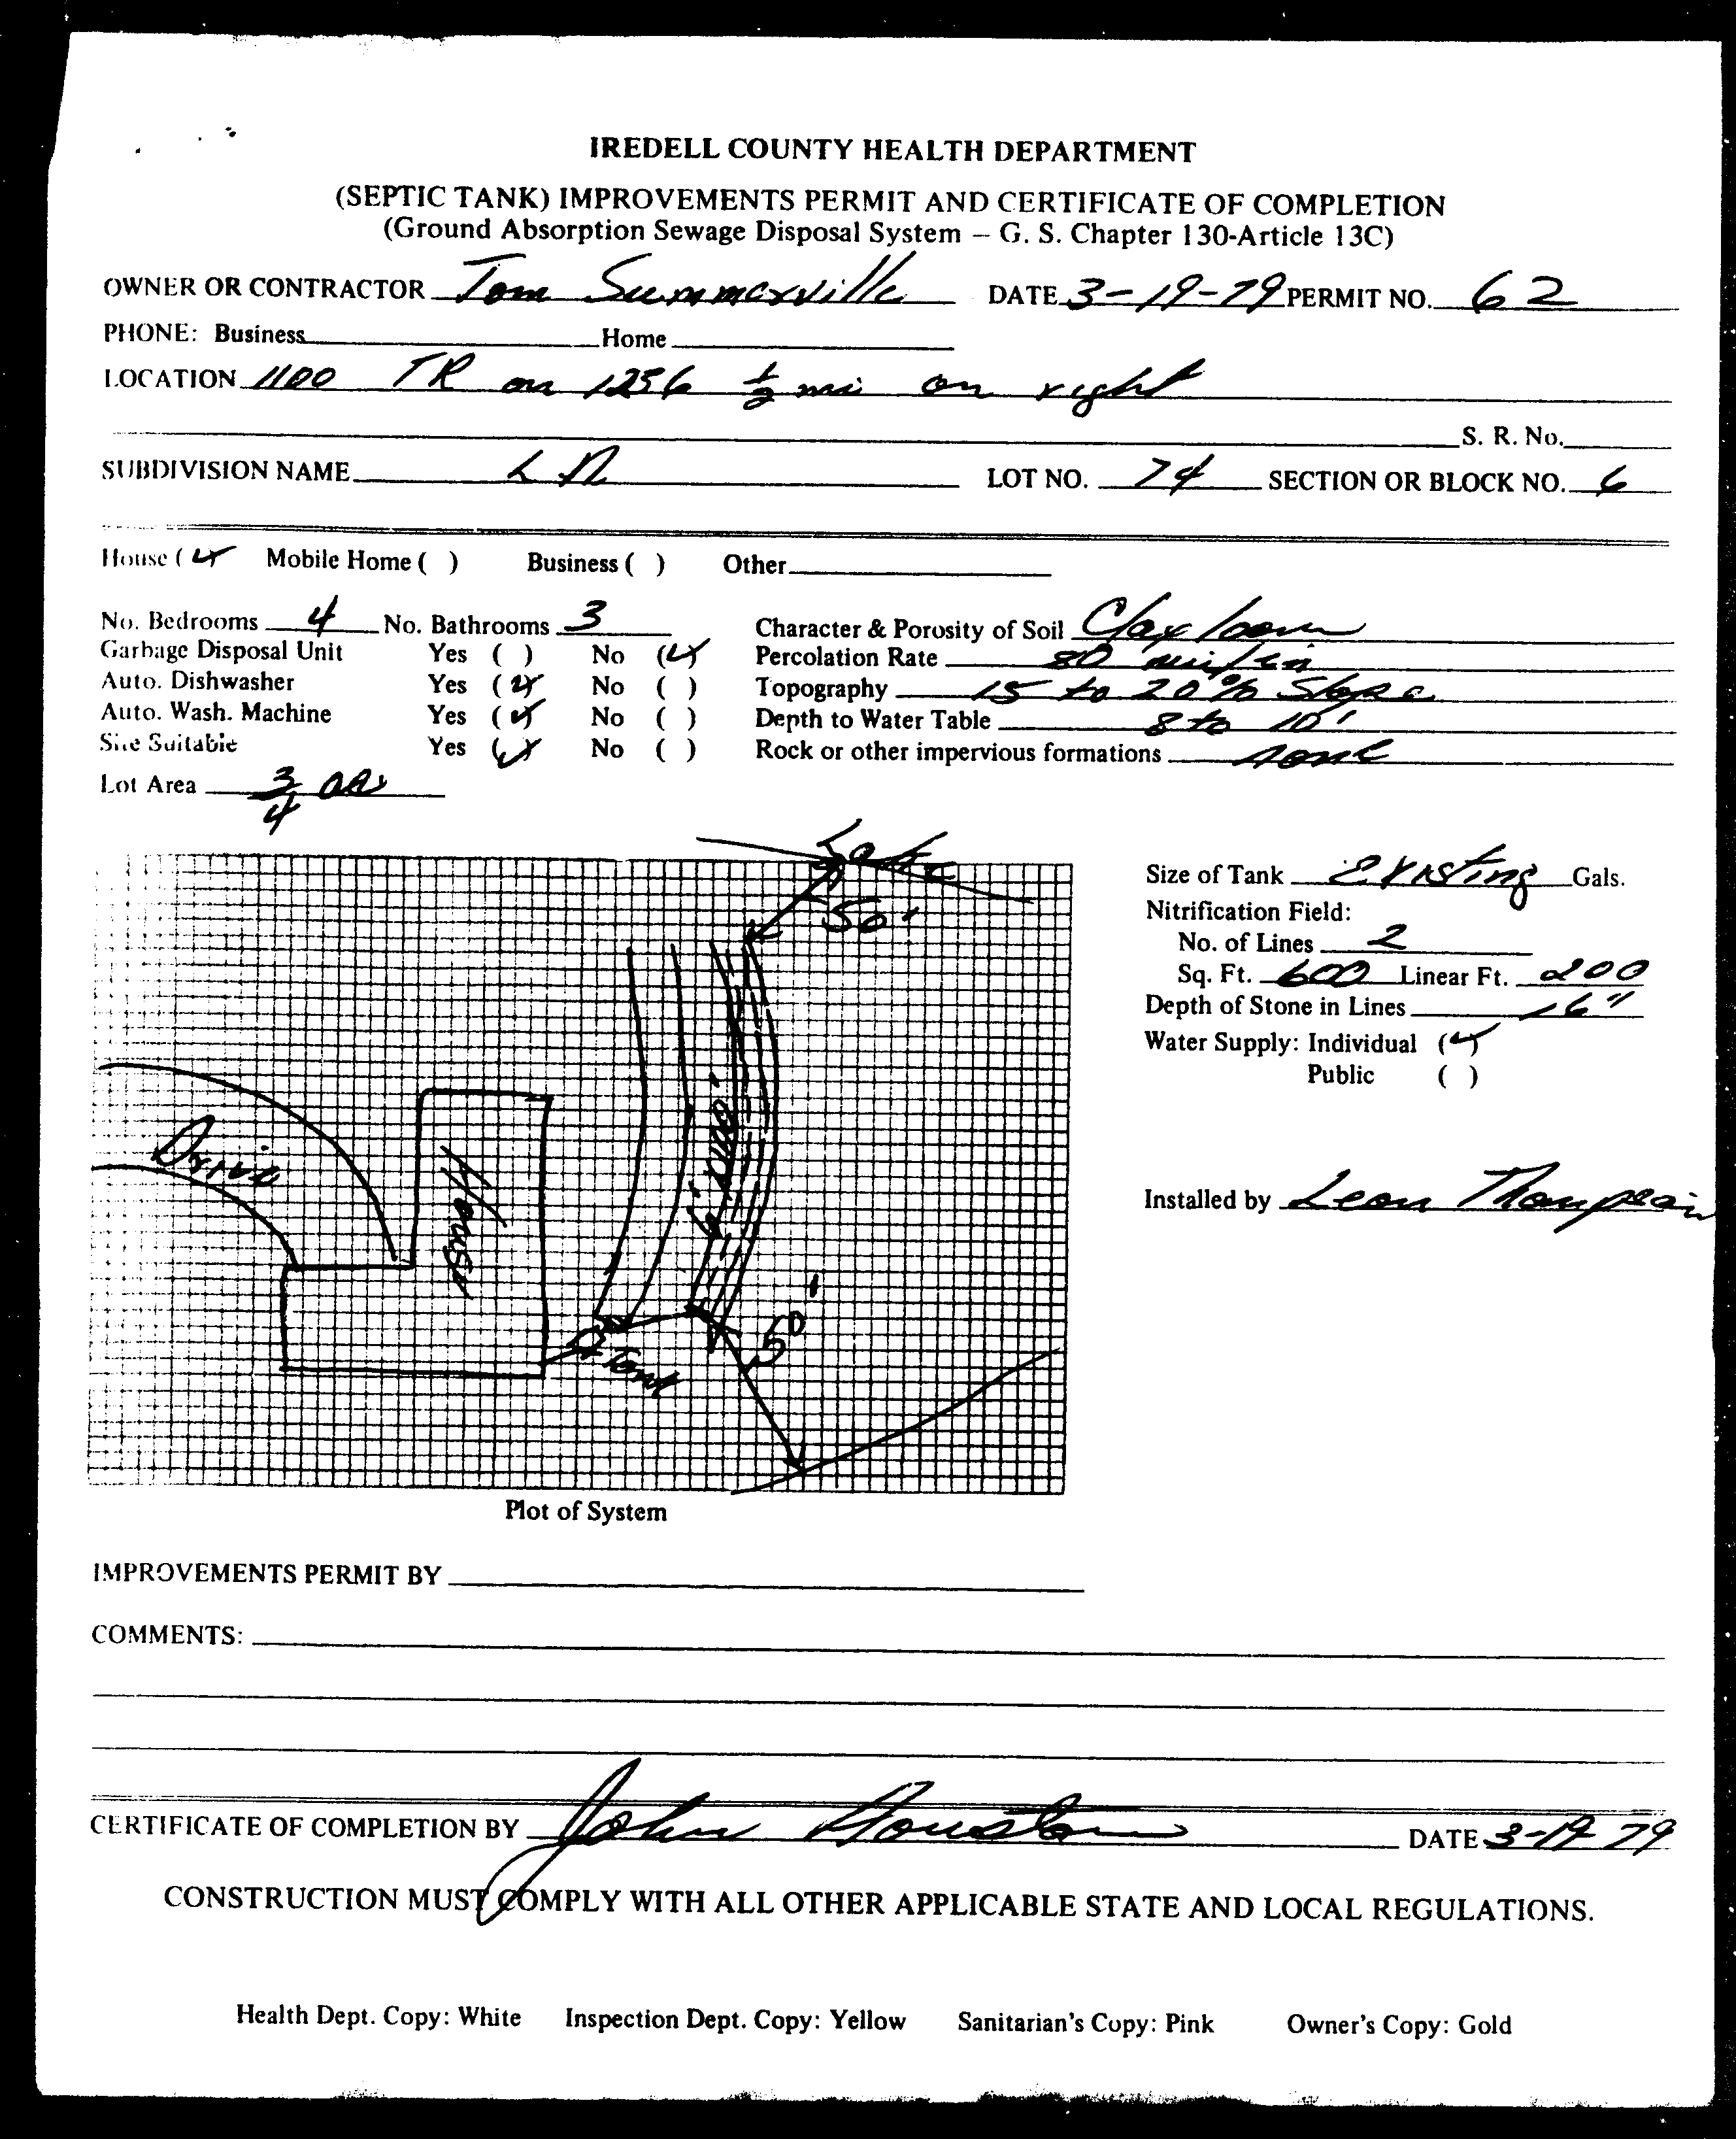 IREDELL COUNTY HEALTH DEPARTMENT
(SEPTIC TANK) IMPROVEMENTS PERMIT AND CERTIFICATE OF COMPLETION
(Ground Absorption Sewage Disposal System – G. S. Chapter 130-Article 13C)
OWNER OR CONTRACTOR Tom Summerville DATE 3-19-79 PERMIT NO. 62
PHONE: Business Home
LOCATION 1100 TR on 1256 1/2 mi on right
S. R. No.
SUBDIVISION NAME LN LOT NO. 74 SECTION OR BLOCK NO. 6
House (✓) Mobile Home ( ) Business ( ) Other
No. Bedrooms 4 No. Bathrooms 3
Garbage Disposal Unit Yes ( ) No (✓)
Auto. Dishwasher Yes (✓) No ( )
Auto. Wash. Machine Yes (✓) No ( )
Site Suitable Yes (✓) No ( )
Lot Area 3/4
Character & Porosity of Soil Clay loam
Percolation Rate 80 min/in
Topography 15 to 20% Slope
Depth to Water Table 8 to 10'
Rock or other impervious formations none
Lake
50'
Drive
House
6" X 100'
Tank
50'
Plot of System
Size of Tank Existing Gals.
Nitrification Field:
No. of Lines 2
Sq. Ft. 600 Linear Ft. 200
Depth of Stone in Lines 16"
Water Supply: Individual (✓)
Public ( )
Installed by Leon Thompson
IMPROVEMENTS PERMIT BY
COMMENTS:
CERTIFICATE OF COMPLETION BY John Houston DATE 3-19-79
CONSTRUCTION MUST COMPLY WITH ALL OTHER APPLICABLE STATE AND LOCAL REGULATIONS.
Health Dept. Copy: White Inspection Dept. Copy: Yellow Sanitarian's Copy: Pink Owner's Copy: Gold